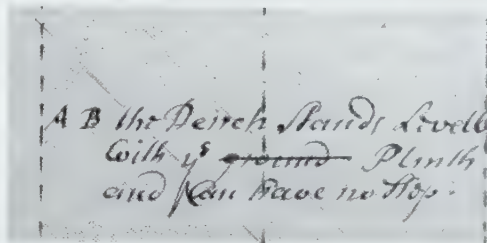 A B the Peirch Stands Levell
with ye ground Plinth
and Can have no Stop.